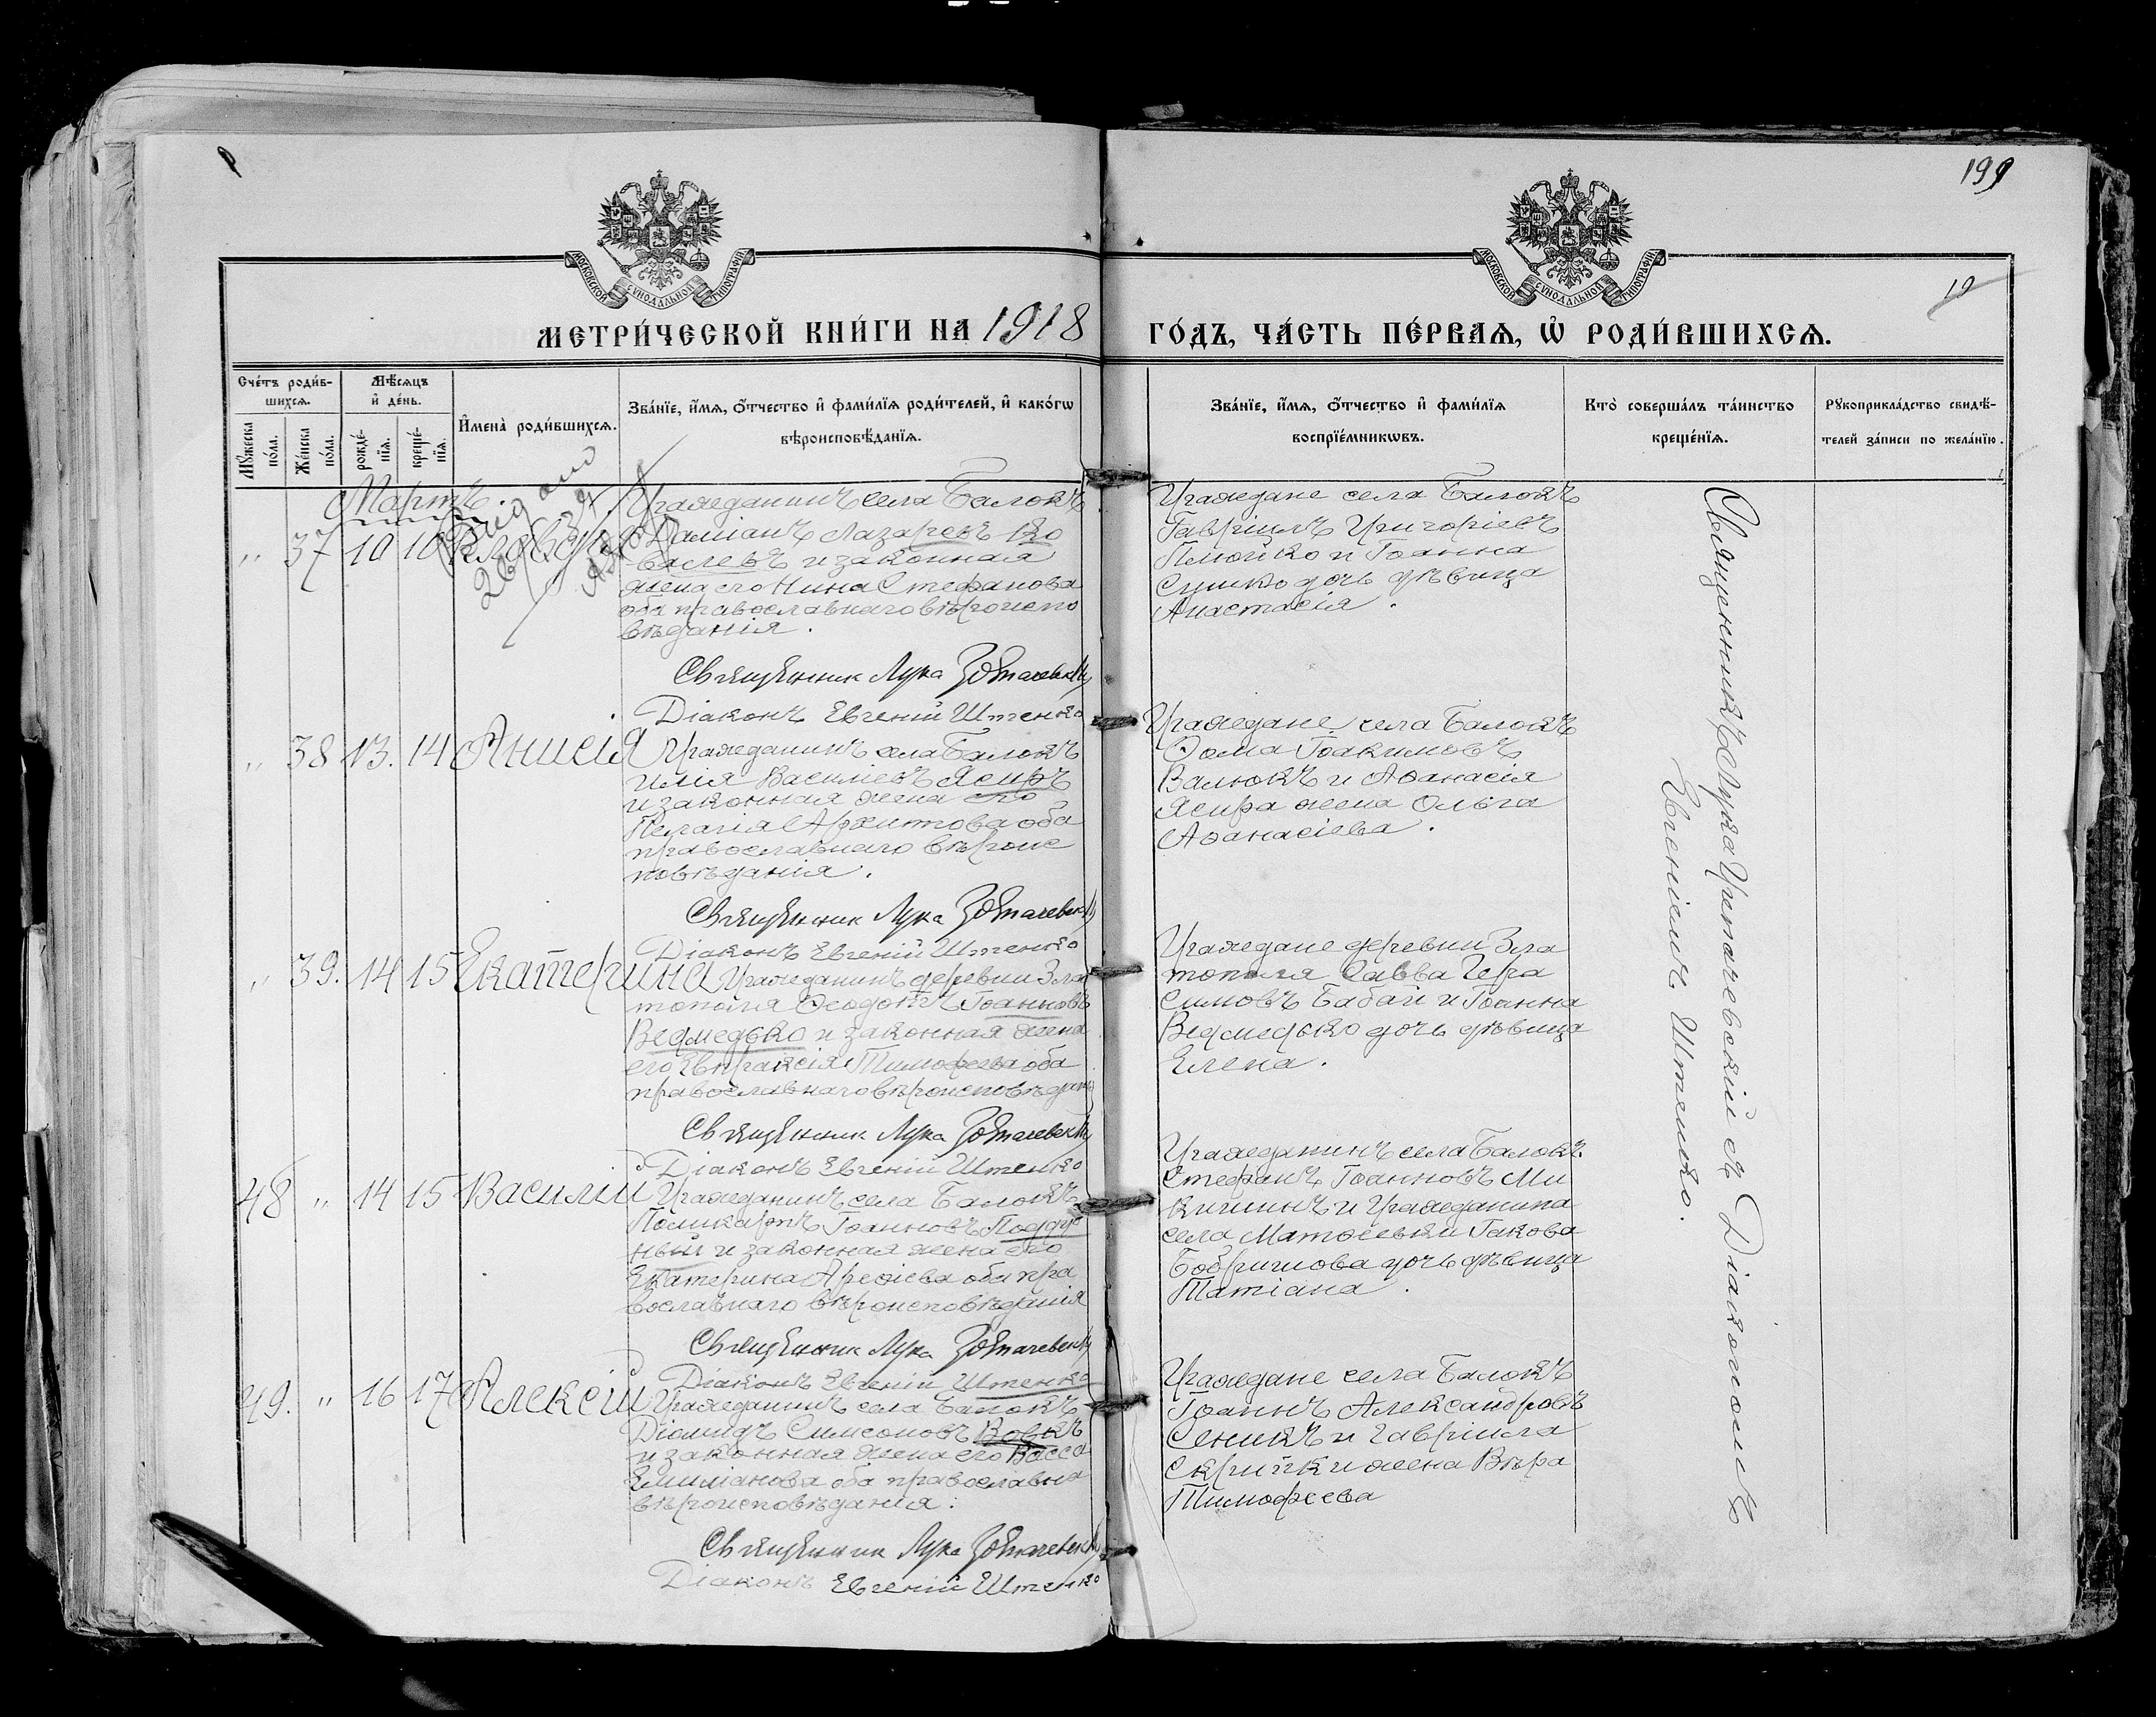 199
19
МОСКОВСКОЙ СУНОДАЛЬНОЙ ТИПОГРАФІИ
МОСКОВСКОЙ СУНОДАЛЬНОЙ ТИПОГРАФІИ
МЕТРИ́ЧЕСКОЙ КНИ́ГИ НА 1918
ГО́ДЪ, ЧА́СТЬ ПЕ́РВАѦ, Ѡ҆ РОДИ́ВШИХСѦ.
Сче́тъ роди́в-
шихсѧ.
Мꙋ́жеска по́ла.
Же́нска по́ла.
Мѣ́сѧцъ
и҆ де́нь.
рожде́-нїѧ.
креще́-нїѧ.
И҆мена̀ роди́вшихсѧ.
Зва́нїе, и҆́мѧ, ѻ҆́тчество и҆ фами́лїѧ роди́телей, и҆ како́гѡ
вѣроисповѣ́данїѧ.
Зва́нїе, и҆́мѧ, ѻ҆́тчество и҆ фами́лїѧ
воспрїе́мникѡвъ.
Кто̀ соверша́лъ та́инство
креще́нїѧ.
Рꙋкоприкла́дство свидѣ́-
телей за́писи по жела́нїю.
Мартъ.
„ 37 10 10
Гражданинъ села Балокъ
Даміанъ Лазаревъ Ко
валевъ и законная
жена его Нина Стефанова
оба православнаго вѣроиспо
вѣданія.
Священник Лука
Діаконъ Евгеній Штенко
Граждане села Балокъ
Гавріилъ Григоріевъ
Плюйко и Іоанна
Сушко дочь дѣвица
Анастасія.
„ 38 13. 14 Анисія
Гражданинъ села Балокъ
Илія Василіевъ Ясиръ
и законная жена его
Пелагія Архипова оба
православнаго вѣроис
повѣданія.
Священник Лука
Діаконъ Евгеній Штенко
Граждане села Балокъ
Ѳома Іоакимовъ
Валюкъ и Аѳанасія
Ясира жена Ольга
Аѳанасіева.
„ 39. 14 15 Екатерина
Гражданинъ деревни Зла
тополя Ѳеодотъ Іоанновъ
Ведмедько и законная жена
его Евпраксія Тимофеева оба
православнаго вѣроисповѣдан
Священник Лука
Діаконъ Евгеній Штенко
Граждане деревни Зла
тополя Савва Гера
симовъ Бабай и Іоанна
Ведмедько дочь дѣвица
Елена.
48 „ 14 15 Василій
Гражданинъ села Балокъ
Поликарпъ Іоанновъ Поддуб
ный и законная жена его
Екатерина Арефіева оба пра
вославнаго вѣроисповѣданія
Священник Лука
Діаконъ Евгеній Штенко
Гражданинъ села Балокъ
Стефанъ Іоанновъ Ми
кичинъ и Гражданина
села Матвеевки Іакова
дочь дѣвица
Татіана.
49. „ 16 17 Алексій
Гражданинъ села Балокъ
Діомидъ Симеоновъ Вовкъ
и законная жена его Васса
Емиліанова оба православна
вѣроисповѣданія.
Священник Лука
Діаконъ Евгеній Штенко
Граждане села Балокъ
Іоаннъ Александровъ
Сеникъ и Гавріила
Скрипки жена Вѣра
Тимофеева
Священникъ Лука съ Діакономъ
Евгеніемъ Штенко.